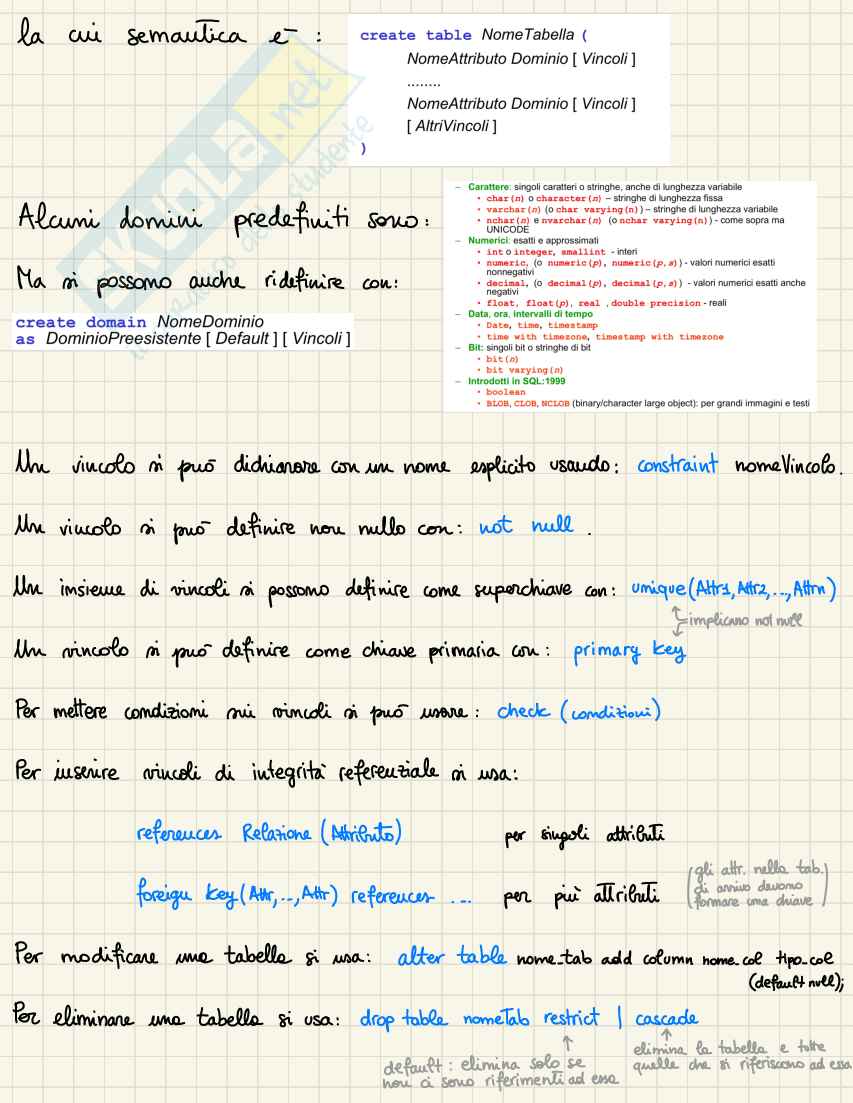 la cui semantica è :
create table NomeTabella (
NomeAttributo Dominio [ Vincoli ]
........
NomeAttributo Dominio [ Vincoli ]
[ AltriVincoli ]
)
SKUOLA.net
il paradiso dello studente
Alcuni domini predefiniti sono:
– Carattere: singoli caratteri o stringhe, anche di lunghezza variabile
• char(n) o character(n) – stringhe di lunghezza fissa
• varchar(n) (o char varying(n)) – stringhe di lunghezza variabile
• nchar(n) e nvarchar(n) (o nchar varying(n)) - come sopra ma
UNICODE
– Numerici: esatti e approssimati
• int o integer, smallint - interi
• numeric, (o numeric(p), numeric(p,s)) - valori numerici esatti
nonnegativi
• decimal, (o decimal(p), decimal(p,s)) - valori numerici esatti anche
negativi
• float, float(p), real , double precision - reali
– Data, ora, intervalli di tempo
• Date, time, timestamp
• time with timezone, timestamp with timezone
– Bit: singoli bit o stringhe di bit
• bit(n)
• bit varying(n)
– Introdotti in SQL:1999
• boolean
• BLOB, CLOB, NCLOB (binary/character large object): per grandi immagini e testi
Ma si possono anche ridefinire con:
create domain NomeDominio
as DominioPreesistente [ Default ] [ Vincoli ]
Un vincolo si può dichiarare con un nome esplicito usando: constraint nomeVincolo.
Un vincolo si può definire non nullo con: not null .
Un insieme di vincoli si possono definire come superchiave con: unique(Attr1, Attr2, ..., Attrn)
implicano not null
Un vincolo si può definire come chiave primaria con: primary key
Per mettere condizioni sui vincoli si può usare: check (condizioni)
Per inserire vincoli di integrità referenziale si usa:
references Relazione (Attributo) per singoli attributi
foreign key(Attr, .., Attr) references ... per più attributi
(gli attr. nella tab.
di arrivo devono
formare una chiave)
Per modificare una tabella si usa: alter table nome_tab add column nome_col tipo_col
(default null);
Per eliminare una tabella si usa: drop table nomeTab restrict | cascade
default : elimina solo se
non ci sono riferimenti ad essa
elimina la tabella e tutte
quelle che si riferiscono ad essa